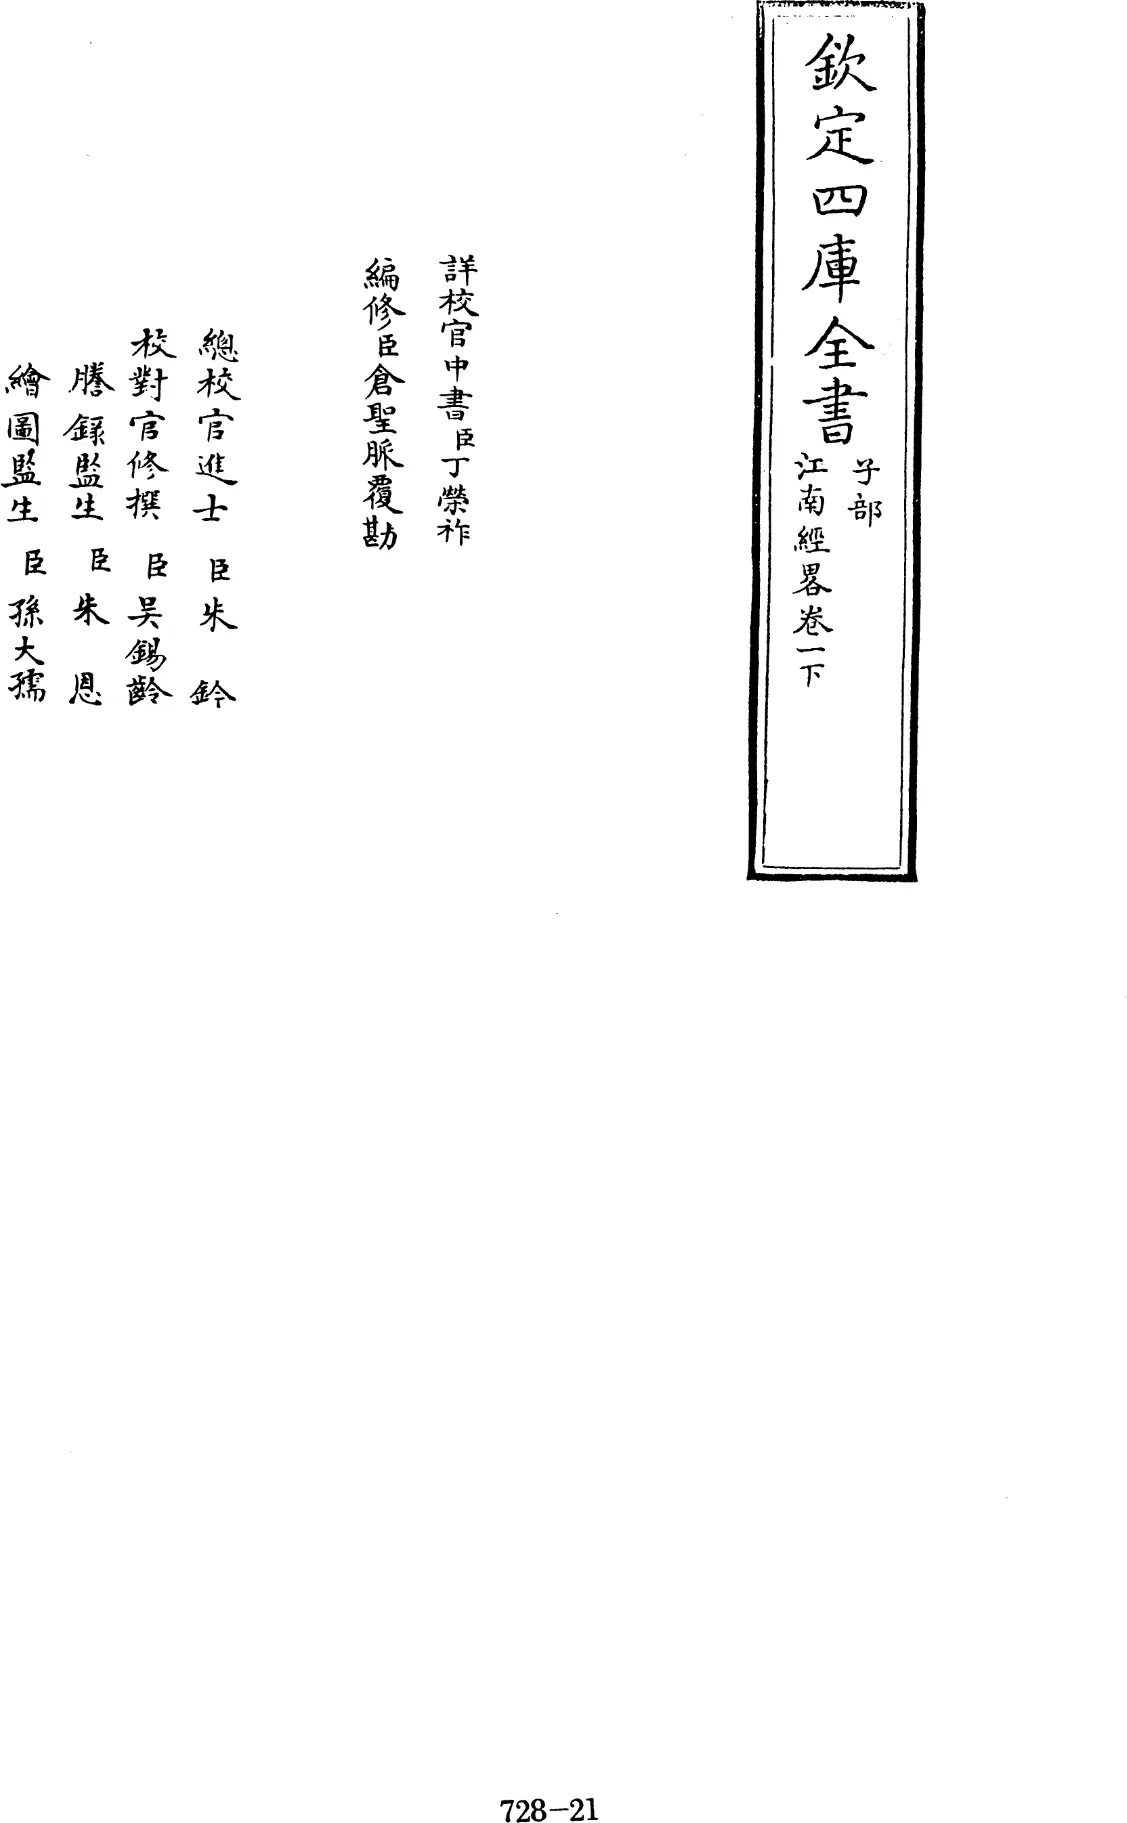 欽定四庫全書
子部
江南經畧卷一下
詳校官中書臣丁榮祚
編修臣倉聖脈覆勘
總校官進士臣朱鈐
校對官修撰臣吳錫齡
謄錄監生臣朱恩
繪圖監生臣孫大孺
728-21